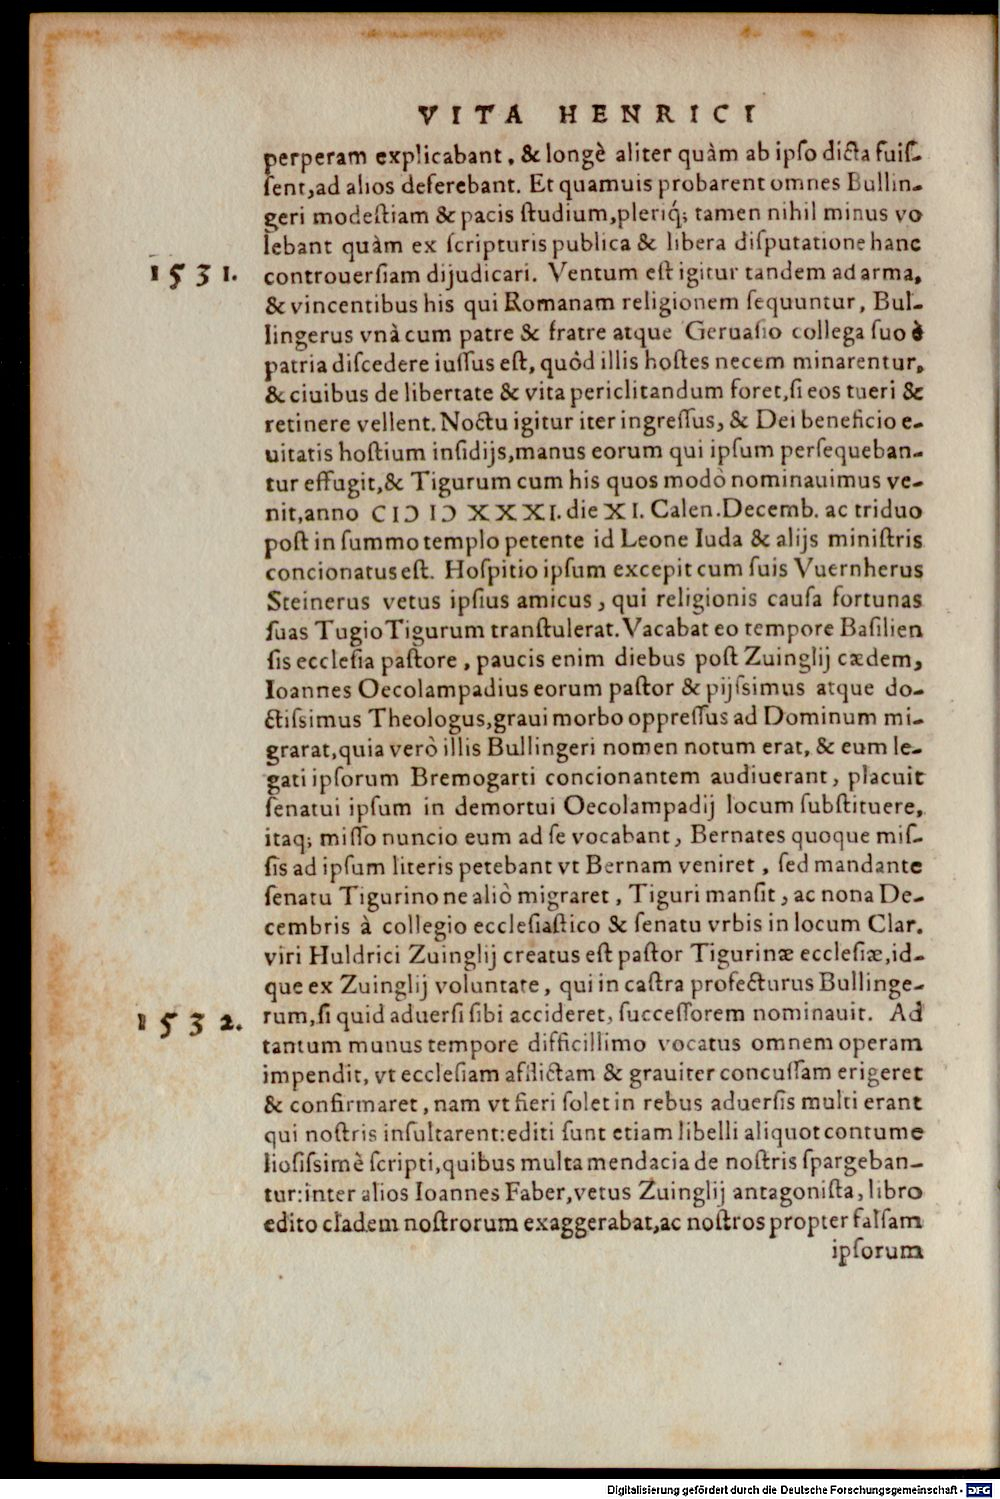 VITA HENRICI
perperam explicabant, & longè aliter quàm ab ipso dicta fuiſ-
ſent, ad alios deferebant. Et quamuis probarent omnes Bullin-
geri modeſtiam & pacis ſtudium, pleriq́; tamen nihil minus vo
lebant quàm ex ſcripturis publica & libera diſputatione hanc
1531.
controuerſiam dijudicari. Ventum eſt igitur tandem ad arma,
& vincentibus his qui Romanam religionem ſequuntur, Bul-
lingerus vnà cum patre & fratre atque Geruaſio collega ſuo è
patria diſcedere iuſſus eſt, quòd illis hoſtes necem minarentur,
& ciuibus de libertate & vita periclitandum foret, ſi eos tueri &
retinere vellent. Noctu igitur iter ingreſſus, & Dei beneficio e-
uitatis hoſtium inſidijs, manus eorum qui ipſum perſequeban-
tur effugit, & Tigurum cum his quos modò nominauimus ve-
nit, anno CIↃ IↃ XXXI. die XI. Calen. Decemb. ac triduo
poſt in ſummo templo petente id Leone Iuda & alijs miniſtris
concionatus eſt. Hoſpitio ipſum excepit cum ſuis Vuernherus
Steinerus vetus ipſius amicus, qui religionis cauſa fortunas
ſuas Tugio Tigurum tranſtulerat. Vacabat eo tempore Baſilien
ſis eccleſia paſtore, paucis enim diebus poſt Zuinglij cædem,
Ioannes Oecolampadius eorum paſtor & pijſsimus atque do-
ctiſsimus Theologus, graui morbo oppreſſus ad Dominum mi-
grarat, quia verò illis Bullingeri nomen notum erat, & eum le-
gati ipſorum Bremogarti concionantem audiuerant, placuit
ſenatui ipſum in demortui Oecolampadij locum ſubſtituere,
itaq; miſſo nuncio eum ad ſe vocabant, Bernates quoque miſ-
ſis ad ipſum literis petebant vt Bernam veniret, ſed mandante
ſenatu Tigurino ne aliò migraret, Tiguri manſit, ac nona De-
cembris à collegio eccleſiaſtico & ſenatu vrbis in locum Clar.
viri Huldrici Zuinglij creatus eſt paſtor Tigurinæ eccleſiæ, id-
que ex Zuinglij voluntate, qui in caſtra profecturus Bullinge-
1532.
rum, ſi quid aduerſi ſibi accideret, ſucceſſorem nominauit. Ad
tantum munus tempore difficillimo vocatus omnem operam
impendit, vt eccleſiam afflictam & grauiter concuſſam erigeret
& confirmaret, nam vt fieri ſolet in rebus aduerſis multi erant
qui noſtris inſultarent: editi ſunt etiam libelli aliquot contume
lioſiſsimè ſcripti, quibus multa mendacia de noſtris ſpargeban-
tur: inter alios Ioannes Faber, vetus Zuinglij antagoniſta, libro
edito cladem noſtrorum exaggerabat, ac noſtros propter falſam
ipſorum
Digitalisierung gefördert durch die Deutsche Forschungsgemeinschaft - DFG